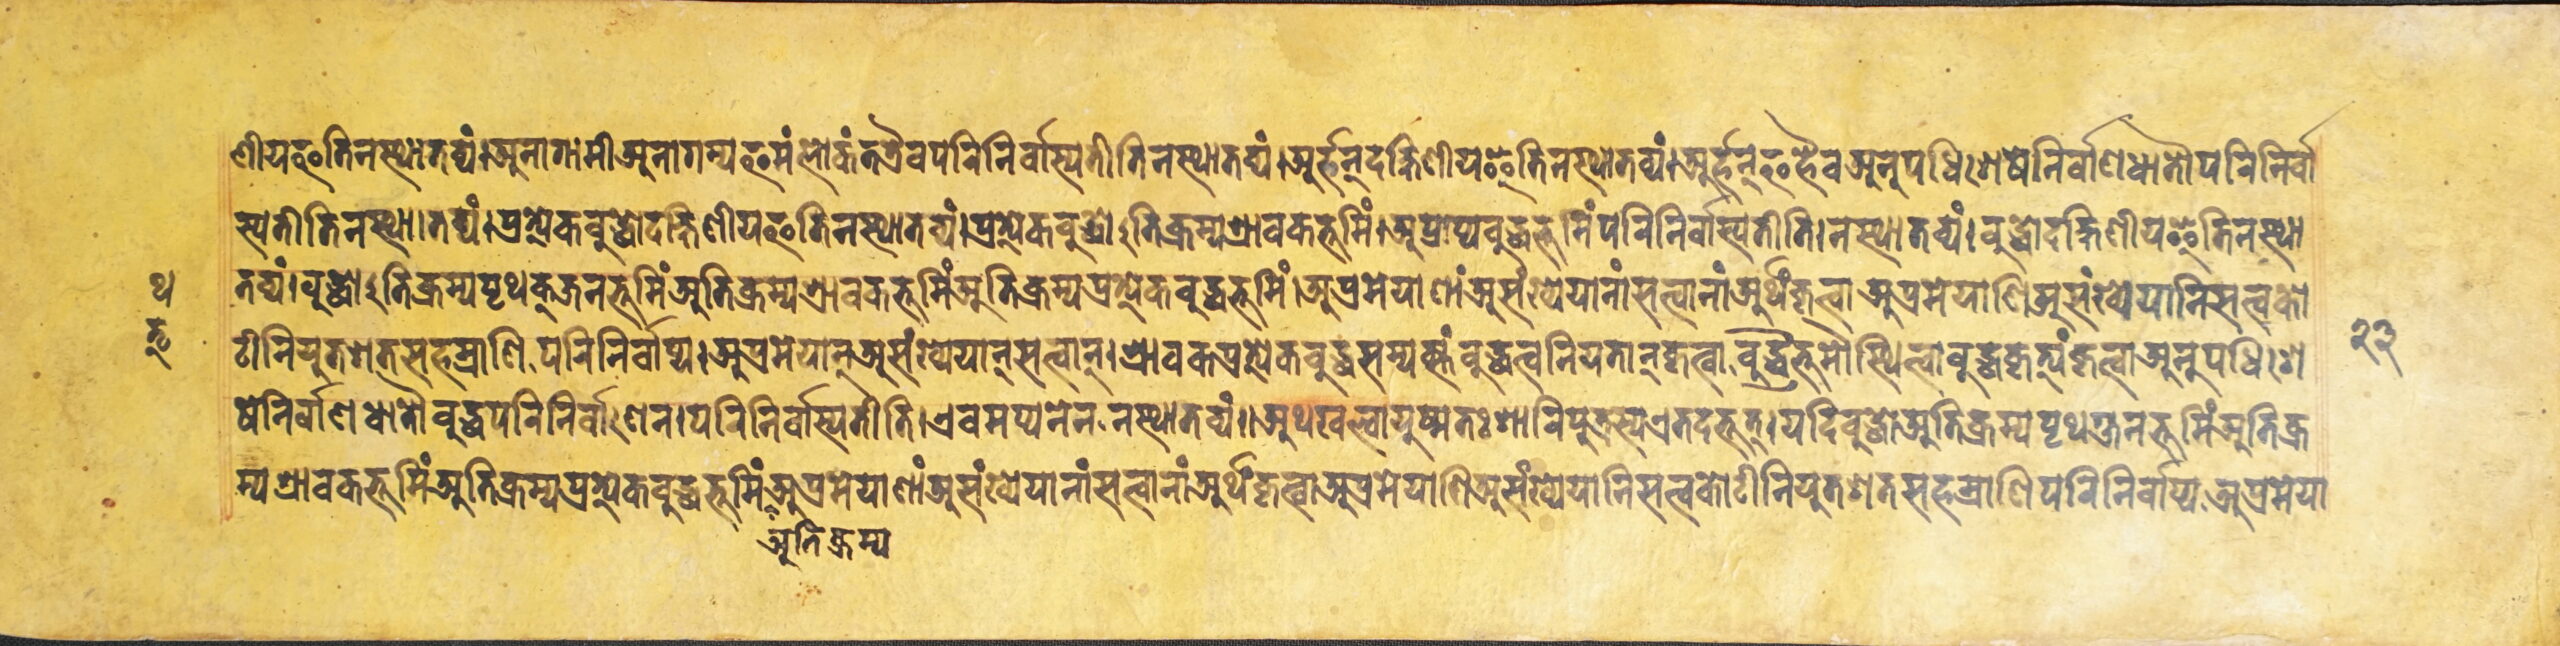 णीयइतिनस्थातव्यं।अनागामीअनागम्यइमंलोकंतत्रैवपरिनिर्वास्यतीतिनस्थातव्यं।अर्हन्दक्षिणीयइतिनस्थातव्यं।अर्हन्इहैवअनुपधिशेषेनिर्वाणधातौपरिनिर्वा
स्यतीतिनस्था।तव्यं।प्रत्येकबुद्धोदक्षिणीयइतिनस्थातव्यं।प्रत्येकबुद्धोऽतिक्रम्यश्रावकभूमिं।अप्राप्यबुद्धभूमिंपरिनिर्वास्यतीति।नस्थातव्यं।बुद्धोदक्षिणीयइतिनस्था
तव्यं।बुद्धोऽतिक्रम्यपृथक्जनभूमिंअतिक्रम्यश्रावकभूमिंअतिक्रम्यप्रत्येकबुद्धभूमिं।अप्रमेयाणांअसंख्येयानांसत्वानांअर्थंकृत्वाअप्रमेयाणिअसंख्येयानिसत्वको
टीनियुतशतसहस्राणिपरिनिर्वाप्य।अप्रमेयान्असंख्येयान्सत्वान्।श्रावकप्रत्येकबुद्धसम्यक्संबुद्धत्वनियतान्कृत्वाबुद्धभूमौस्थित्वाबुद्धकृत्यंकृत्वाअनुपधिशे
षेनिर्वाणधातौबुद्धपरिनिर्वाणेन।परिनिर्वास्यतीति।एवमप्यनेननस्थातव्यं॥अथखल्वायुष्मतःशारिपुत्रस्यएतदभूत्।यदिबुद्धोअतिक्रम्यपृथग्जनभूमिंअतिक्र
म्यश्रावकभूमिंअतिक्रम्यप्रत्येकबुद्धभूमिंअप्रमेयाणांअसंख्येयानांसत्वानांअर्थंकृत्वाअप्रमेयाणिअसंख्येयानिसत्वकोटीनियुतशतसहस्राणिपरिनिर्वाप्यअप्रमेया
अतिक्रम्य
२३